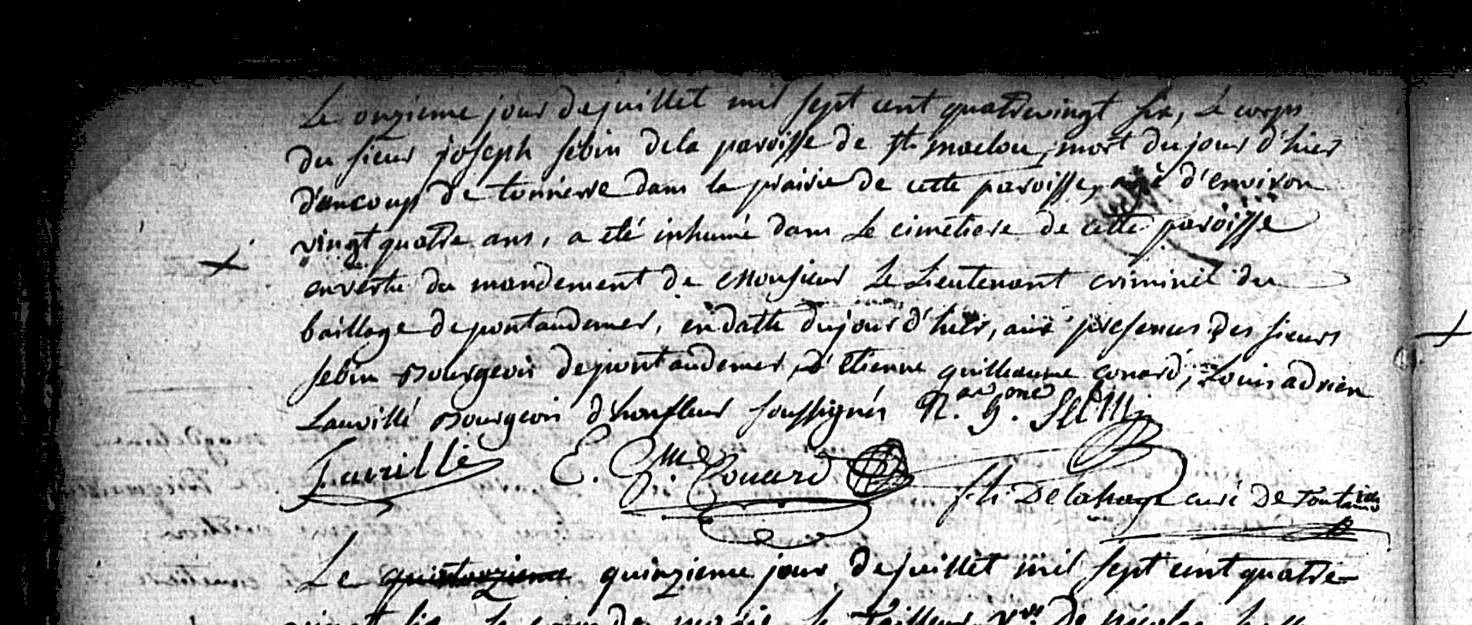 Le onzieme jour de juillet mil sept cent quatrevingt six, le corps
du sieur joseph sebin dela paroisse de st. maclou, mort du jour d'hier
d'uncoup de tonnerre dans la prairie de cette paroisse, agé d'environ
vingt quatre ans, a eté inhumé dans le cimetiere de cette paroisse
envertu du mandement de Monsieur Le Lieutenant criminel du
baillage depontaudemer, endatte dujour d'hier, aux presences des sieurs
sebin Bourgeois depontaudemer, d'Etienne guilleaume conard, Louis adrien
Lauvillé Bourgeois d'honfleur soussignés N. g. Sebin
Lauvillé E. Gme. Conard
fh. Delahaye curé De
Le quinzieme jour de juillet mil sept cent quatre-
vingt six, le corps de marie le Tailleur Vve De nicolas